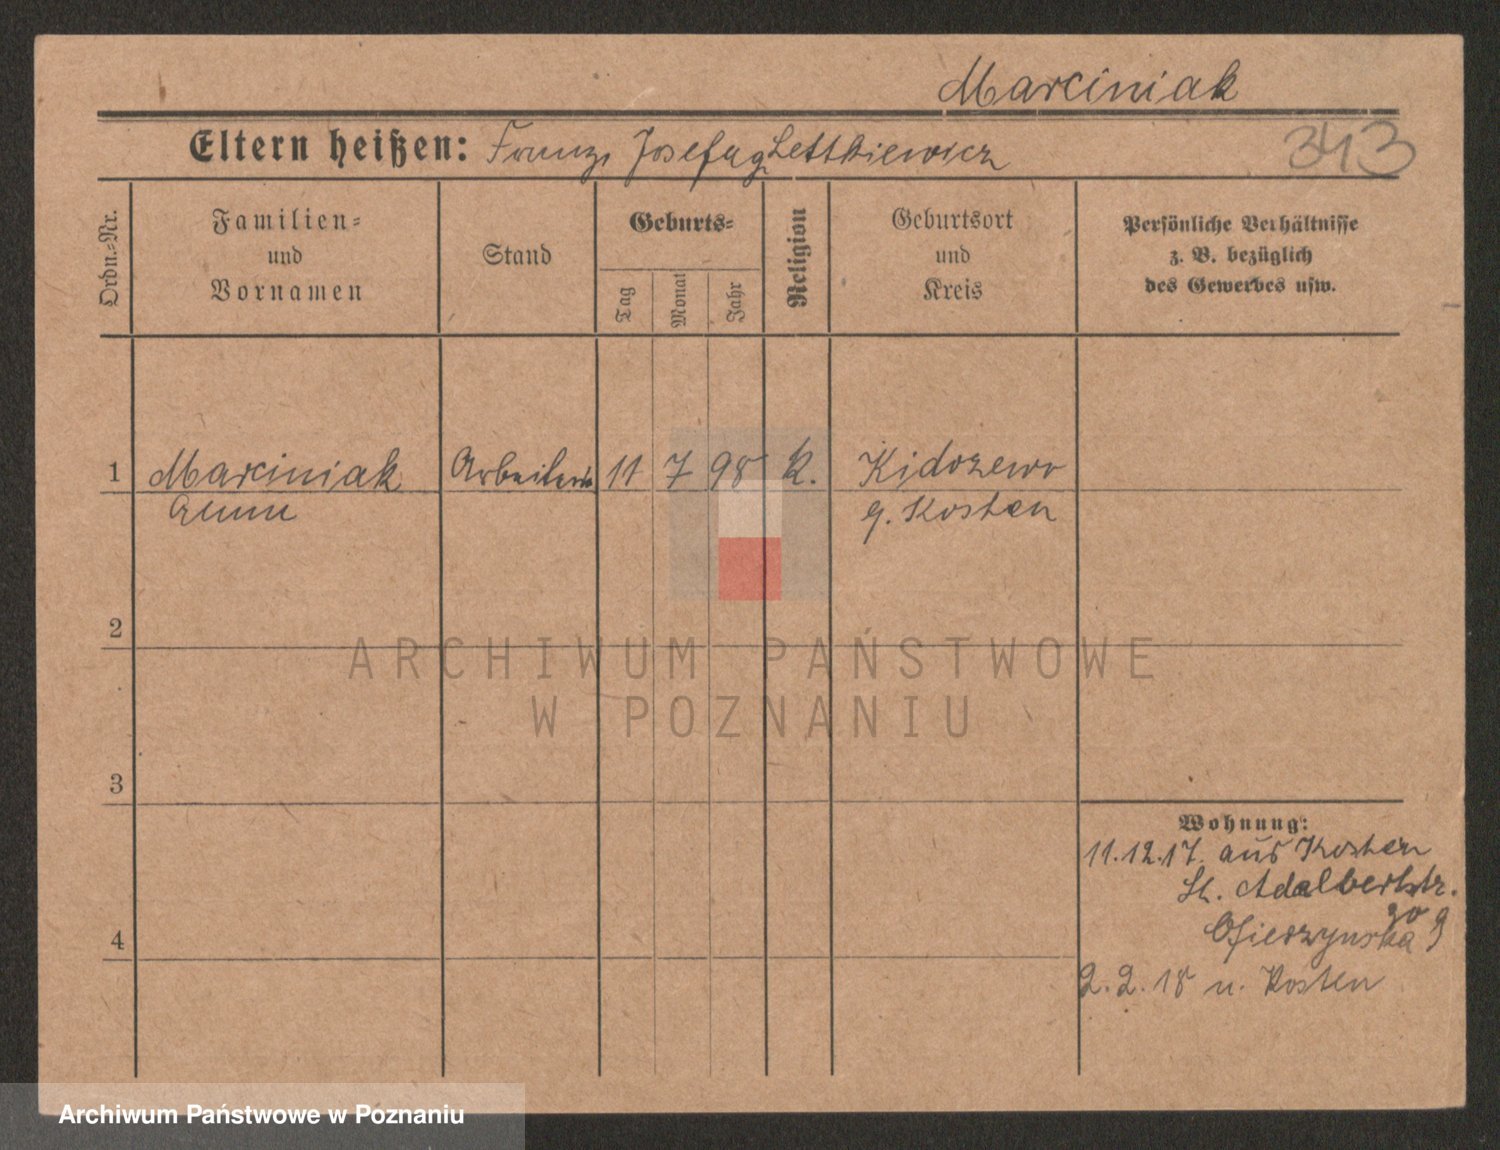 Marciniak
Eltern heißen: Franz, Josefa g Lettkiewicz
343
Ordn.-Nr.
Familien-
und
Vornamen
Stand
Geburts-
Tag
Monat
Jahr
Religion
Geburtsort
und
Kreis
Persönliche Verhältnisse
z. B. bezüglich
des Gewerbes usw.
1 Marciniak Arbeiterin 11 7 98 k. Kidozewo
Anna g. Kosten
2
3
4
Wohnung:
11.12.17. aus Kosten
St. Adalbertstr.
30 g
2.2.18 n. Kosten
ARCHIWUM PAŃSTWOWE
W POZNANIU
Archiwum Państwowe w Poznaniu